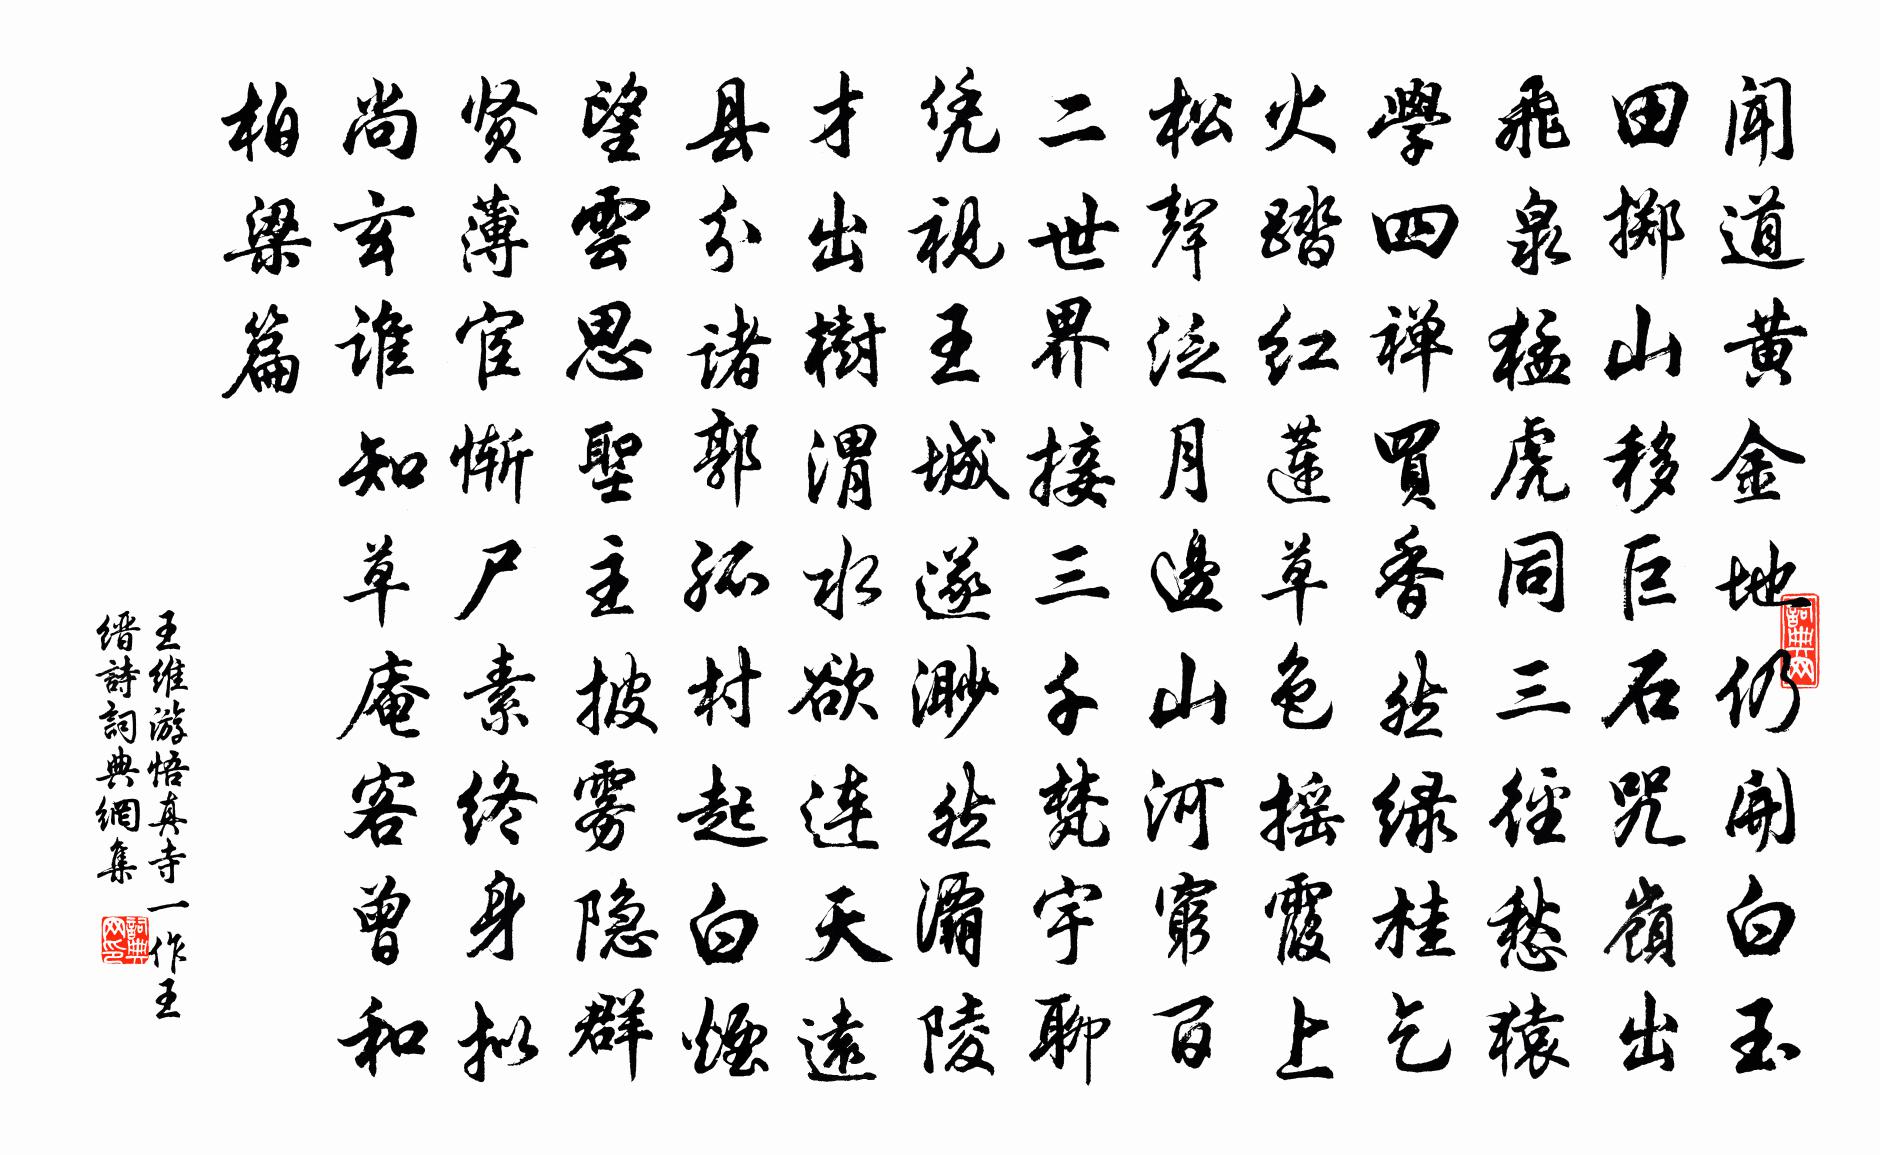 闻道黄金地仍開白玉
田掷山移巨石咒嶺出
飛泉猛虎同三径愁猿
學四禅買香然绿桂乞
火踏红蓮草色摇霞上
松聲泛月邊山河窮百
二世界接三千梵宇聊
凭視王城遂渺然灞陵
才出樹渭水欲连天遠
县分诸郭孤村起白煙
望雲思聖主披雾隐群
贤薄宦惭尸素终身拟
尚玄谁知草庵客曾和
柏梁篇
王维游悟真寺一作王
缙詩詞典網集
詞典网
詞典网印